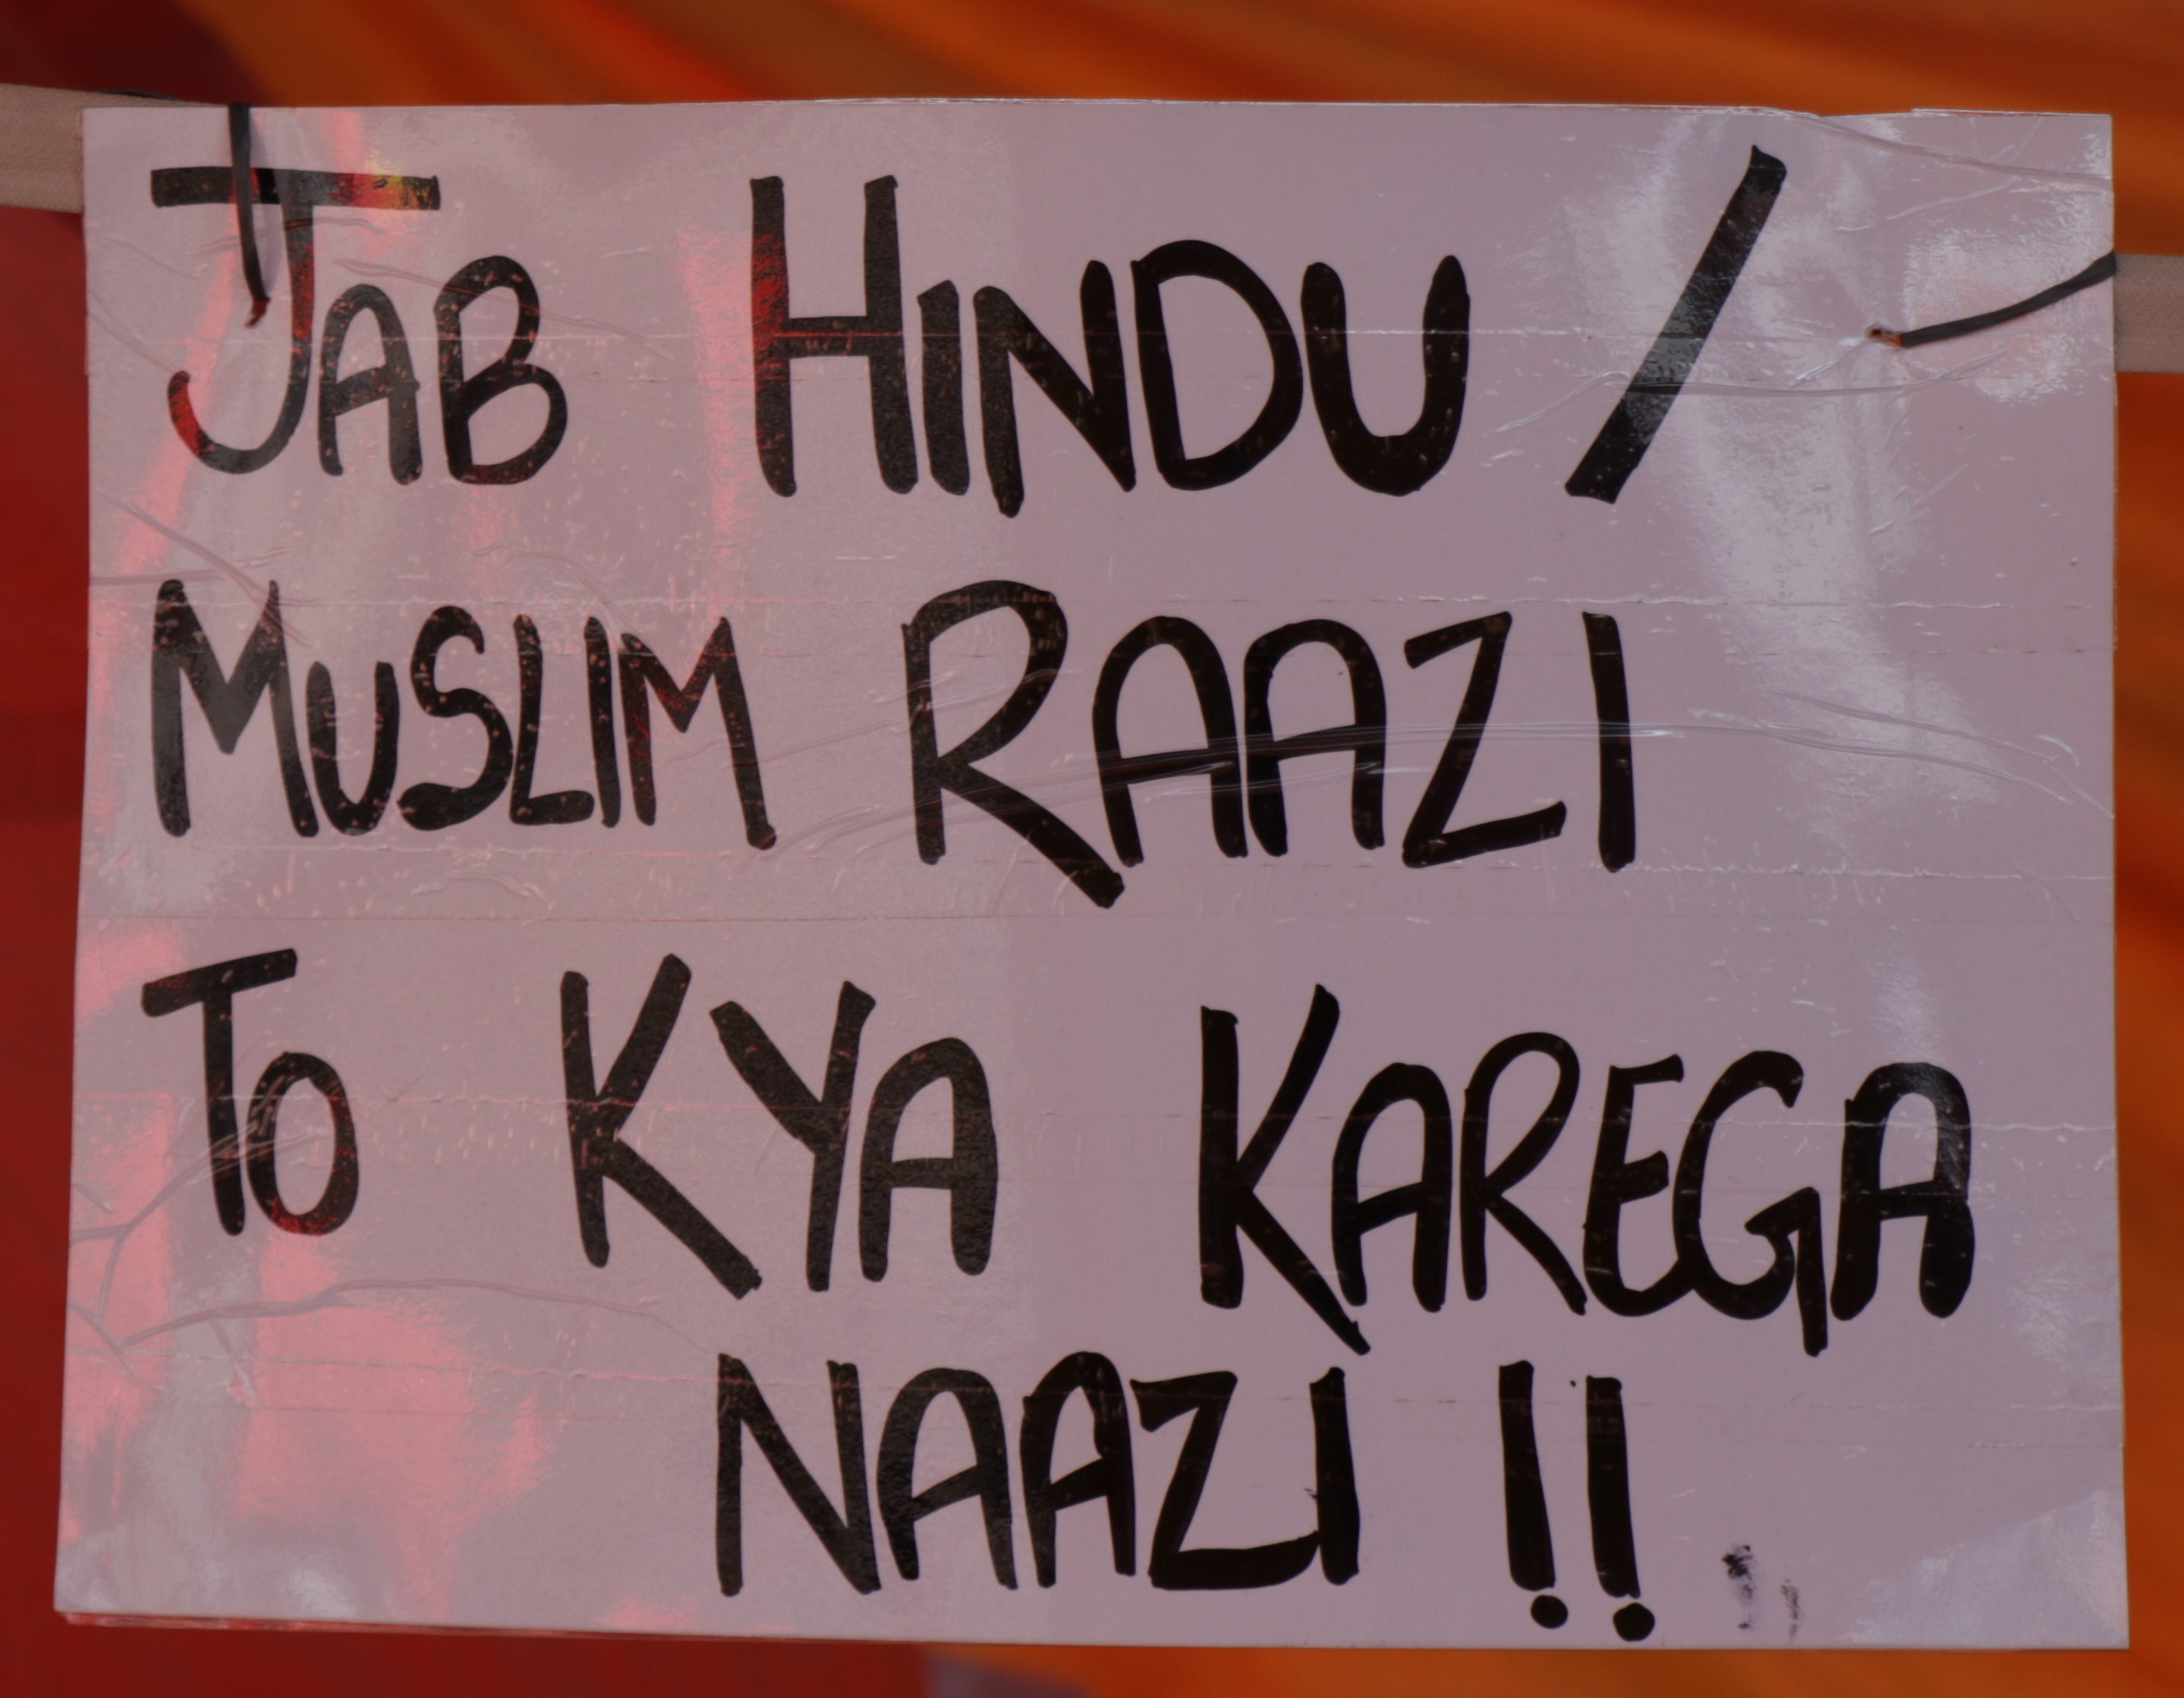 JAB HINDU /
MUSLIM RAAZI
TO KYA KAREGA
NAAZI !!